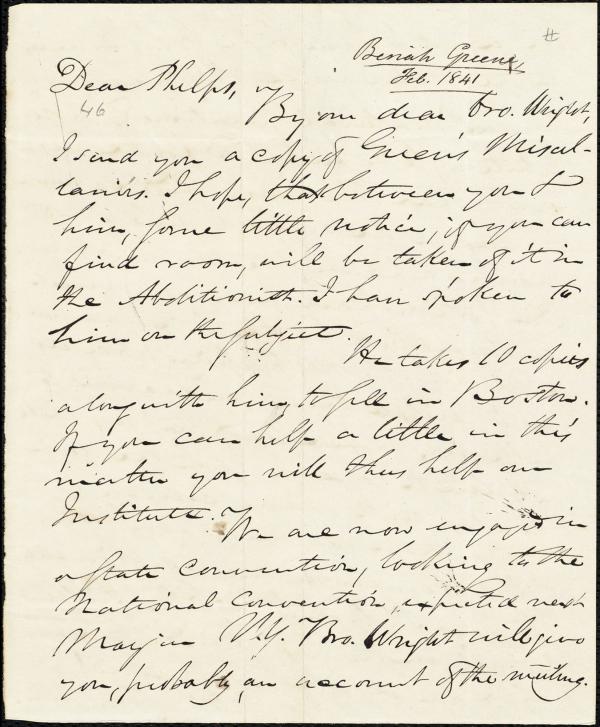 #
Beriah Green,
Feb. 1841
Dear Phelps,
46
By our dear bro. Wright,
I send you a copy of Green's Miscel-
lanies. I hope, that between you &
him, some little notice, if you can
find room, will be taken of it in
the Abolitionist. I have spoken to
him on the subject.
He takes 10 copies
along with him, to sell in Boston.
If you can help a little in this
matter you will thus help our
Institute.
We are now engaged in
a State Convention, looking to the
National Convention, expected next
May in N.Y. Bro. Wright will give
you, probably, an account of the meeting.